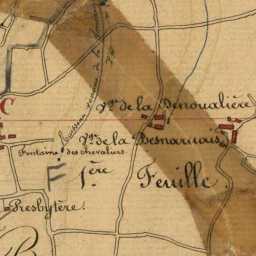 C
Vge de la Denoualière
Vge de la Desnarniais
Fontaine des chevaliers
F 1ère Feuille.
Presbytère